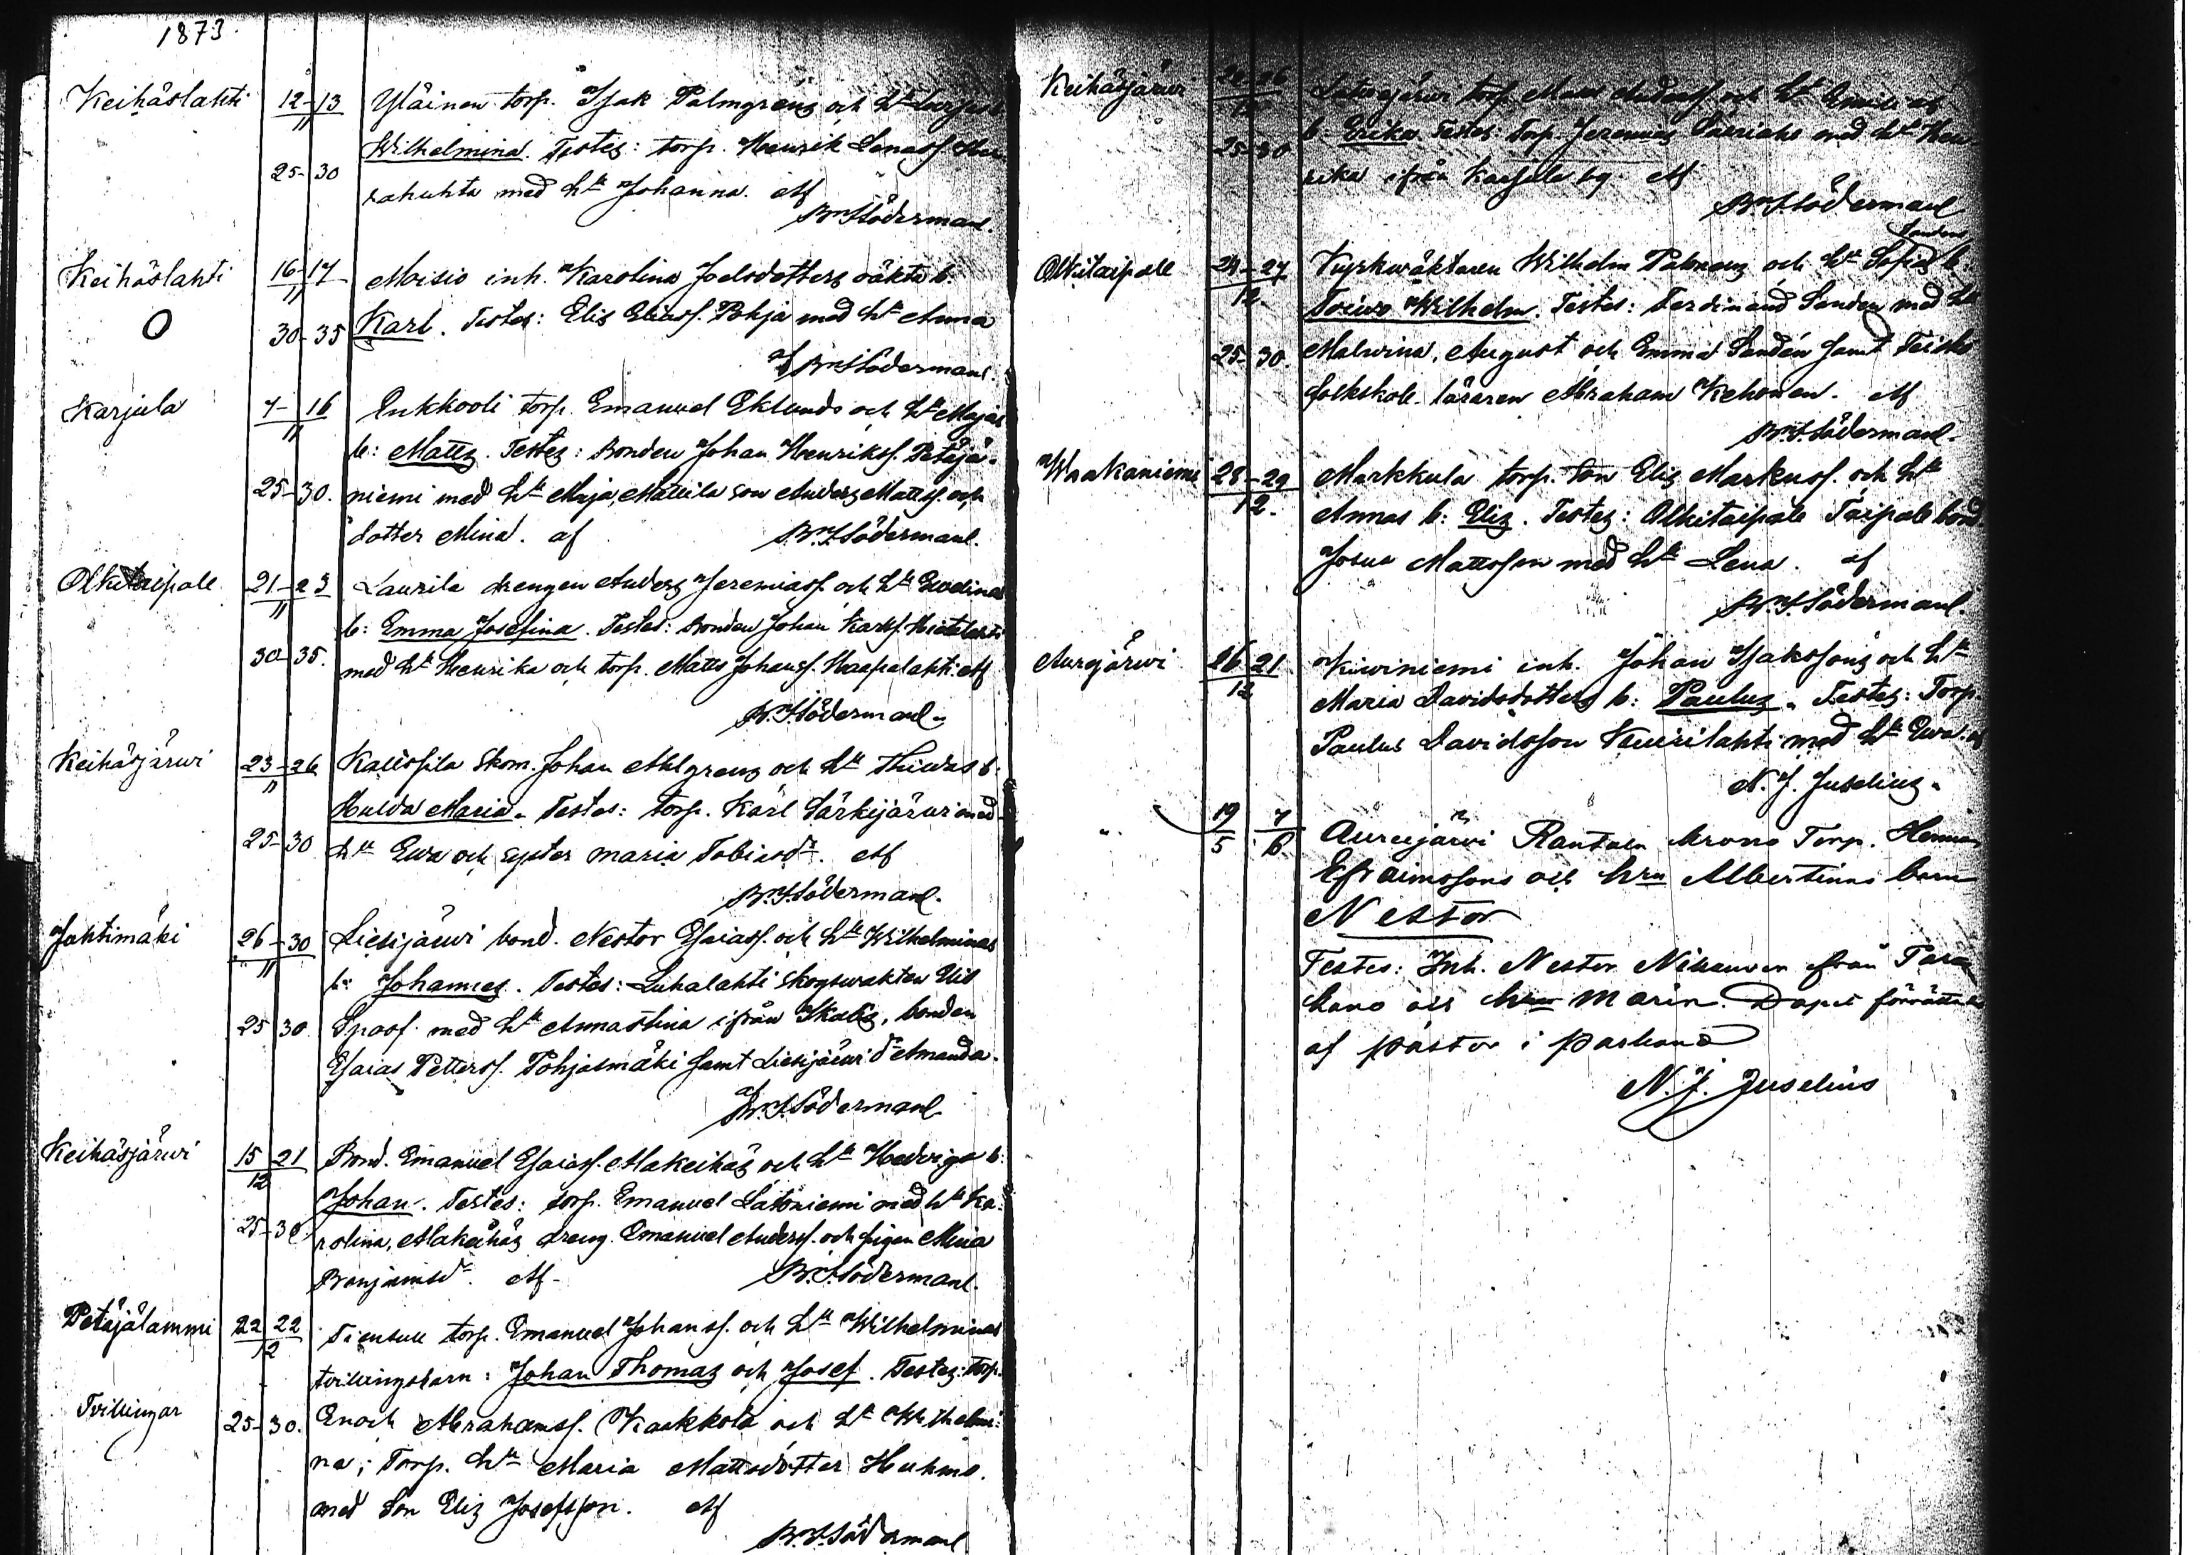 1873
Keihäslahti 12-13/11 Yläinen torp. Isak Palmgrens och h:u
Wilhelmina. Testes: torp. Henrik
25-30 med h:u Johanna. Af
Söderman.
Keihäslahti 16-17/11 Moisio inh. Karolina Joelsdotters oäkta b.
O 30-35 Karl. Testes: Elis Eliass. Pohja med h:u Anna
af Söderman.
Karjula 7-16/11 torp. Emanuel Eklunds och h:u Majas
b: Matts. Testes: Bonden Johan Henrikss. Petäjä-
25-30. niemi med h:u Maja, Mattila son Anders Mattss. och
dotter Mina. af Söderman.
Olkitaipale 21-23/11 Laurila drengen Anders Jeremiass. och h:u
b: Emma Josefina. Testes: Bonden Johan Karlss.
30-35. med h:u Henrika och torp. Matts Johanss. Haapalahti. Af
Söderman.
Keihäsjärwi 23-26/11 Kallosila Skom. Johan Ahlgrens och h:u b:
Hulda Maria. Testes: torp. Karl Särkijärwi med
25-30 h:u Ewa och syster Maria Tobiasd:r. Af
Söderman.
Jahtimäki 26-30/11 Liesijärwi bond. Nestor Esaiass. och h:u Wilhelminas
b: Johannes. Testes: Luhalahti skogswakten Elis
25 30. med h:u Annastina ifrån Ikalis, bonden
Esaias Petterss. Pohjasmäki samt Liesijärwi d:r Amanda.
af Söderman
Keihäsjärwi 15 21/12 Bond. Emanuel Esaiass. Alakeihäs och h:u Hedvigs b:
Johan. Testes: torp. Emanuel Latoniemi med h:u Ka-
25-30 rolina, Alakeihäs dreng Emanuel Anderss. och pigan Mina
Benjamsd:r. Af Söderman.
Petäjälammi 22 22/12 torp. Emanuel Johanss. och h:u Wilhelminas
tvillingsbarn: Johan Thomas och Josef. Testes: torp.
Tvillingar 25-30. Enoch Abrahamss. Kaakkola och h:u Wilhelmi-
na; Torp. h:u Maria Mattsdotter Huhmo.
med Son Elis Josefsson. Af
Söderman
Keihäsjärwi 26/12 Latwajärwi torp. och h:u
b. Erika. Testes: Torp. Jeremias med h:u Hen-
25-30 rika ifrån Karjula by. Af
Söderman
Sandens
Olkitaipale 24-27/12 Kyrkwäktaren Wilhelm och h:u Sofias b:
Toiwo Wilhelm. Testes: Ferdinand Sanden med h:u
25-30. Malwina, August och Emma Sandén samt
folkskole läraren Abraham Kehonen. Af
Söderman.
Waakaniemi 28-29/12. Markkula torp. Son Elis Markuss. och h:u
Annas b: Elis. Testes: Olkitaipale Taipale bond
Josua Mattsson med h:u Lena. af
Söderman.
Aurejärwi 16 21/12 Kiwiniemi inh. Johan Isakssons och h:u
Maria Davidsdotters b: Paulus. Testes: Torp.
Paulus Davidsson med h:u Ewa. af
N. J. Juselius.
" 19/5 7/6 Aurejärwi Rantaen krono Torp.
Efraimssons och hru Albertinas barn
Nestor
Testes: Inh. Nestor från Par
kano och hru Maria. Dopet förrättat
af pastor i Parkano
N. J. Juselius